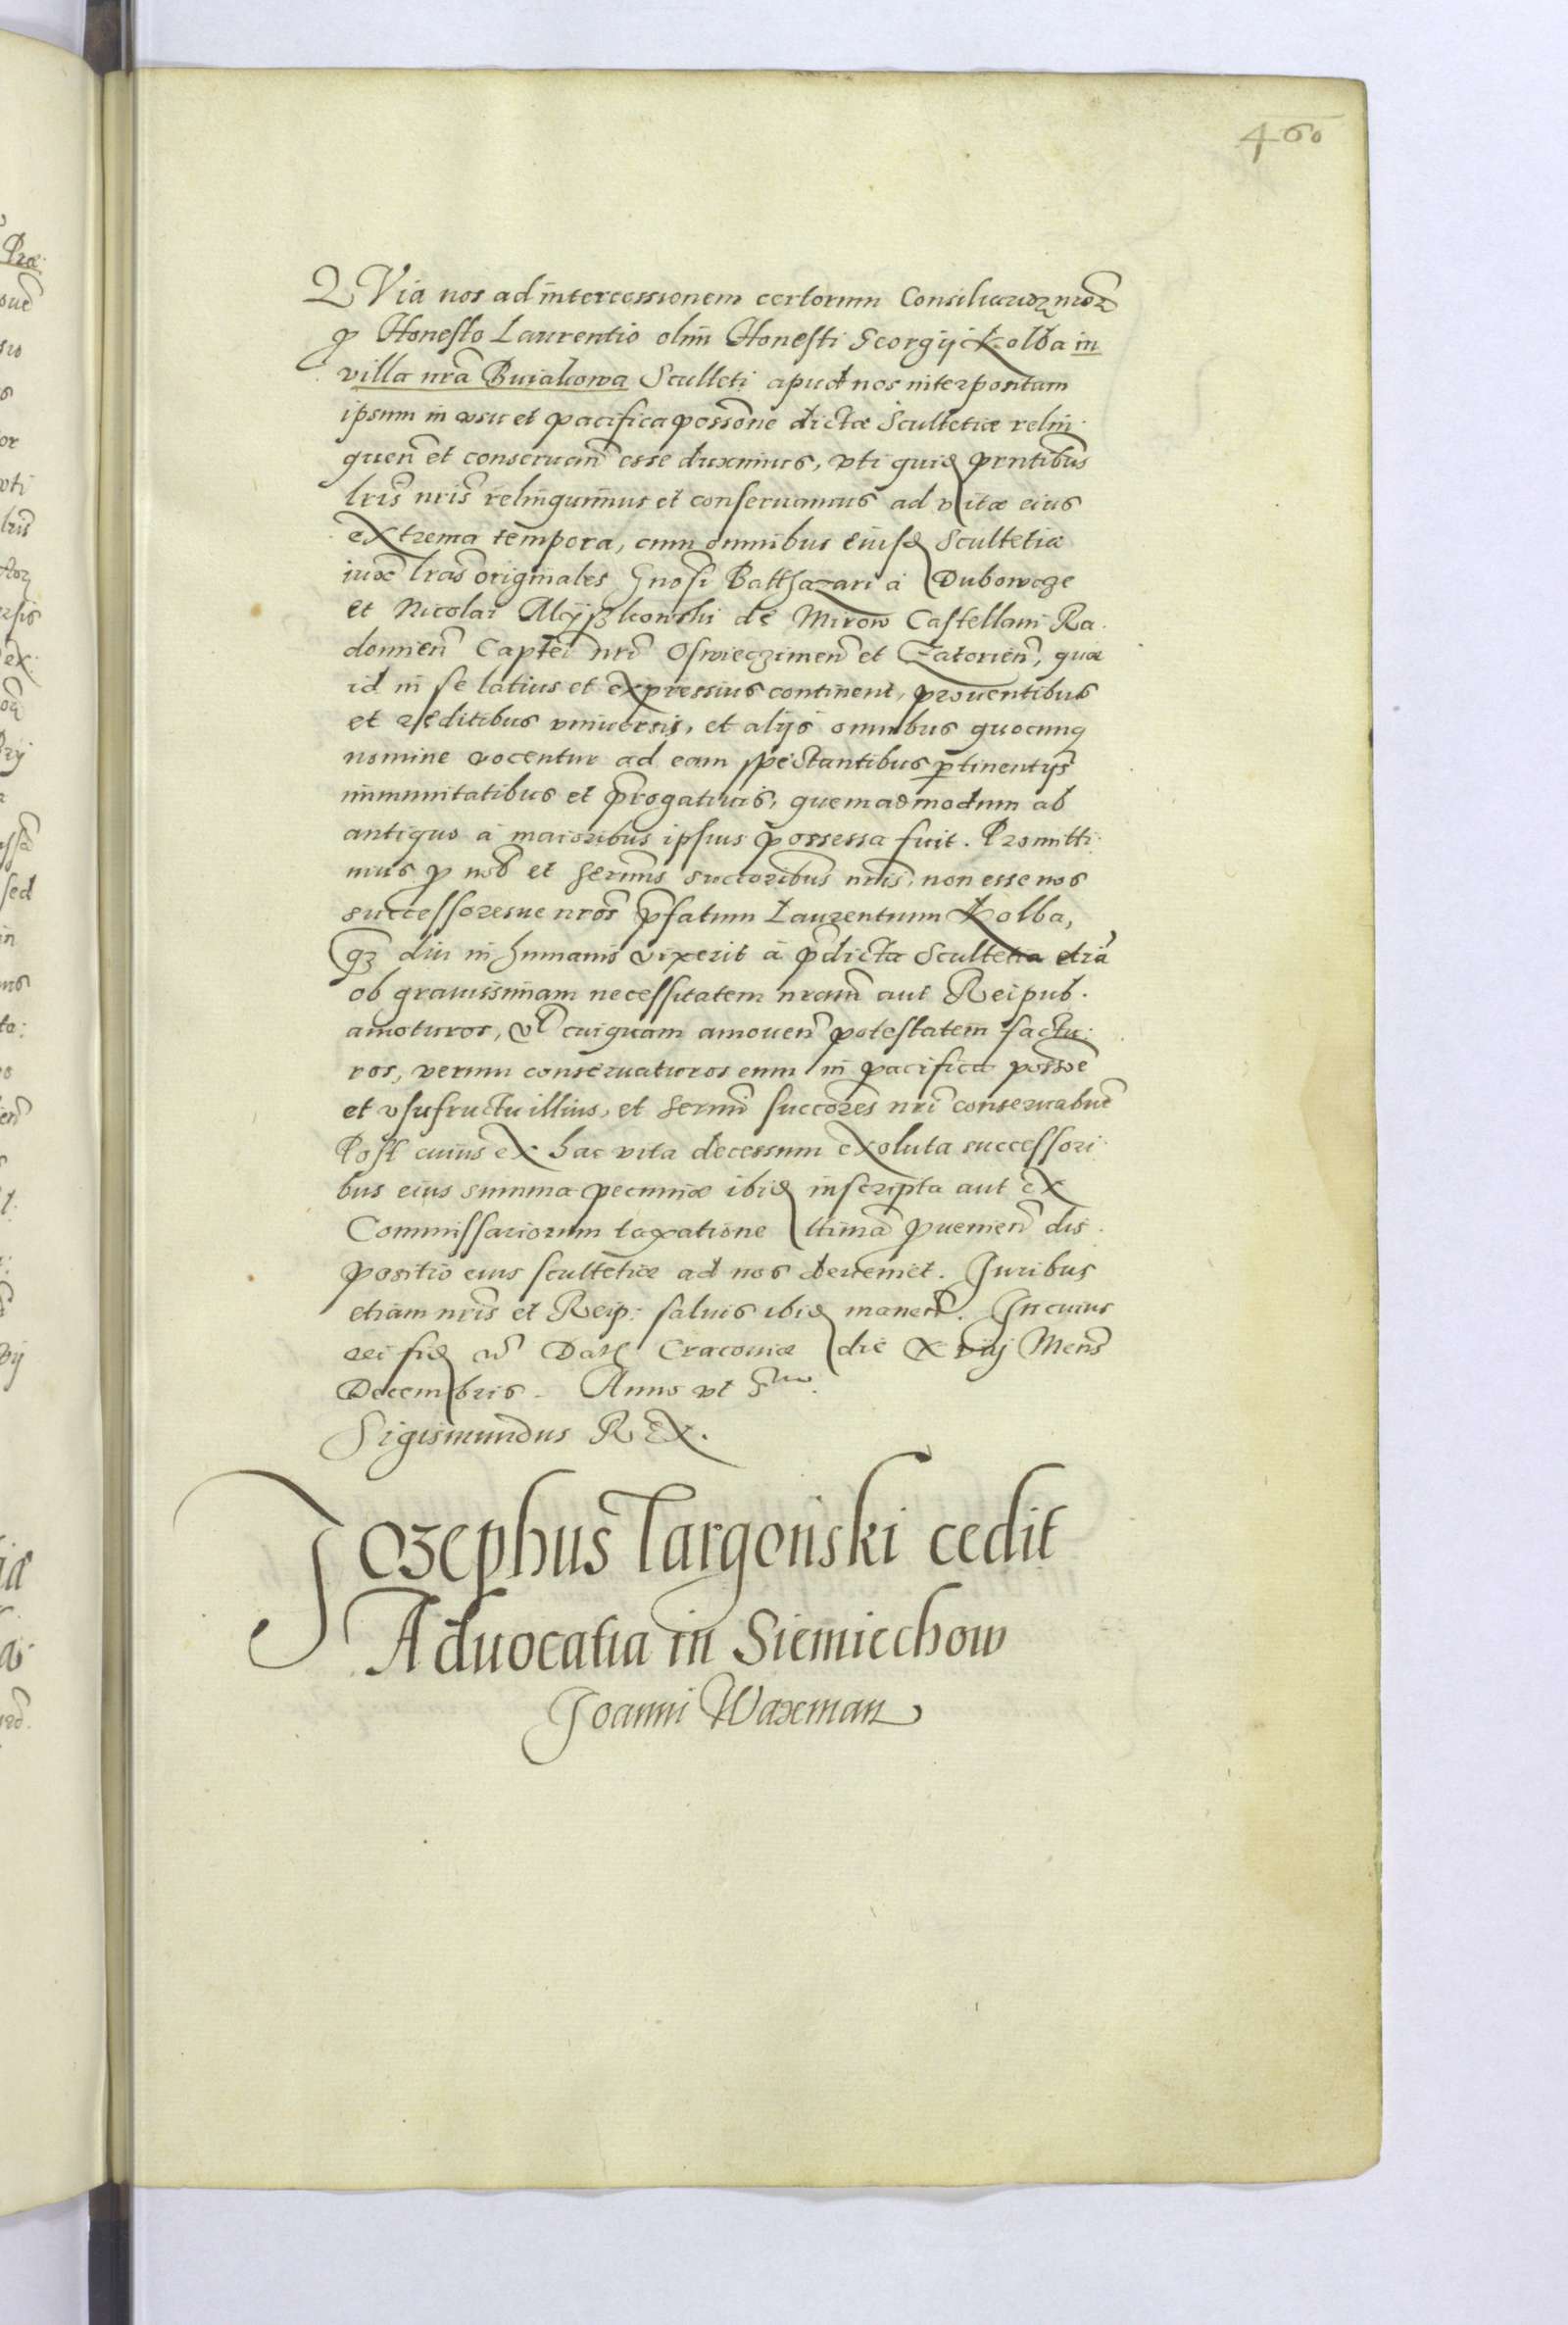 460
QVia nos ad intercessionem certorum Consiliarioꝝ nroꝝ
ꝓ Honesto Laurentio olim Honesti Georgij Kolba in
villa nrã Buiakowa Sculteti apud nos interpositam
ipsum in vsu et pacifica possõne dictæ Scultetiæ relin
quen̄ et conseruan̄ esse duximus, vti quid̄ pn̄tibus
lr̄is nr̄is relinquimus et conseruamus ad vitæ eius
extrema tempora, cum omnibus eiusd̄ Scultetiæ
iuxˢ lr̄as originales Gnosi Balthazari à Dubowcze
et Nicolai Myſzkowski de Mirow Castellani Ra
domien̄ Captei nr̄i Oswieczimen̄ et Zatorien̄, quæ
id in se latius et expressius continent, prouentibus
et reditibus vniuersis, et alijs omnibus quocunq
nomine vocentur ad eam spectantibus ꝑtinentijs
immunitatibus et p̄rogatiuis, quemadmodum ab
antiquo à maioribus ipsius possessa fuit. Promitti
mus ꝓ nob̄ et Serm̄is succoribus nr̄is, non esse nos
successoresue nr̄os p̄fatum Laurentium Kolba,
qꝫ diu in humanis vixerit à p̄dicta Scultetia etiã
ob grauissimam necessitatem nr̄am aut Reipub.
amoturos, vl̄ cuiquam amouen̄ potestatem factu
ros, verum conseruaturos eum in pacifica possõe
et vsufructu illius, et Serm̄i succores nr̄i conseruabūt
Post cuius ex hac vita decessum exoluta successori
bus eius summa pecuniæ ibid̄ inscripta aut ex
Commissariorum taxatione ltimã ꝓuenien̄ dis
positio eius scultetiæ ad nos deueniet. Juribus
etiam nr̄is et Reip: saluis ibid̄ manen̄. In cuius
rei fid̄ Dat̄ Cracouiæ die Xviij Mens̄
Decembris. Anno vt sᵘ.
Sigismundus REX.
Jozephus Targonski cedit
Aduocatia in Siemiechow
Joanni Waxman